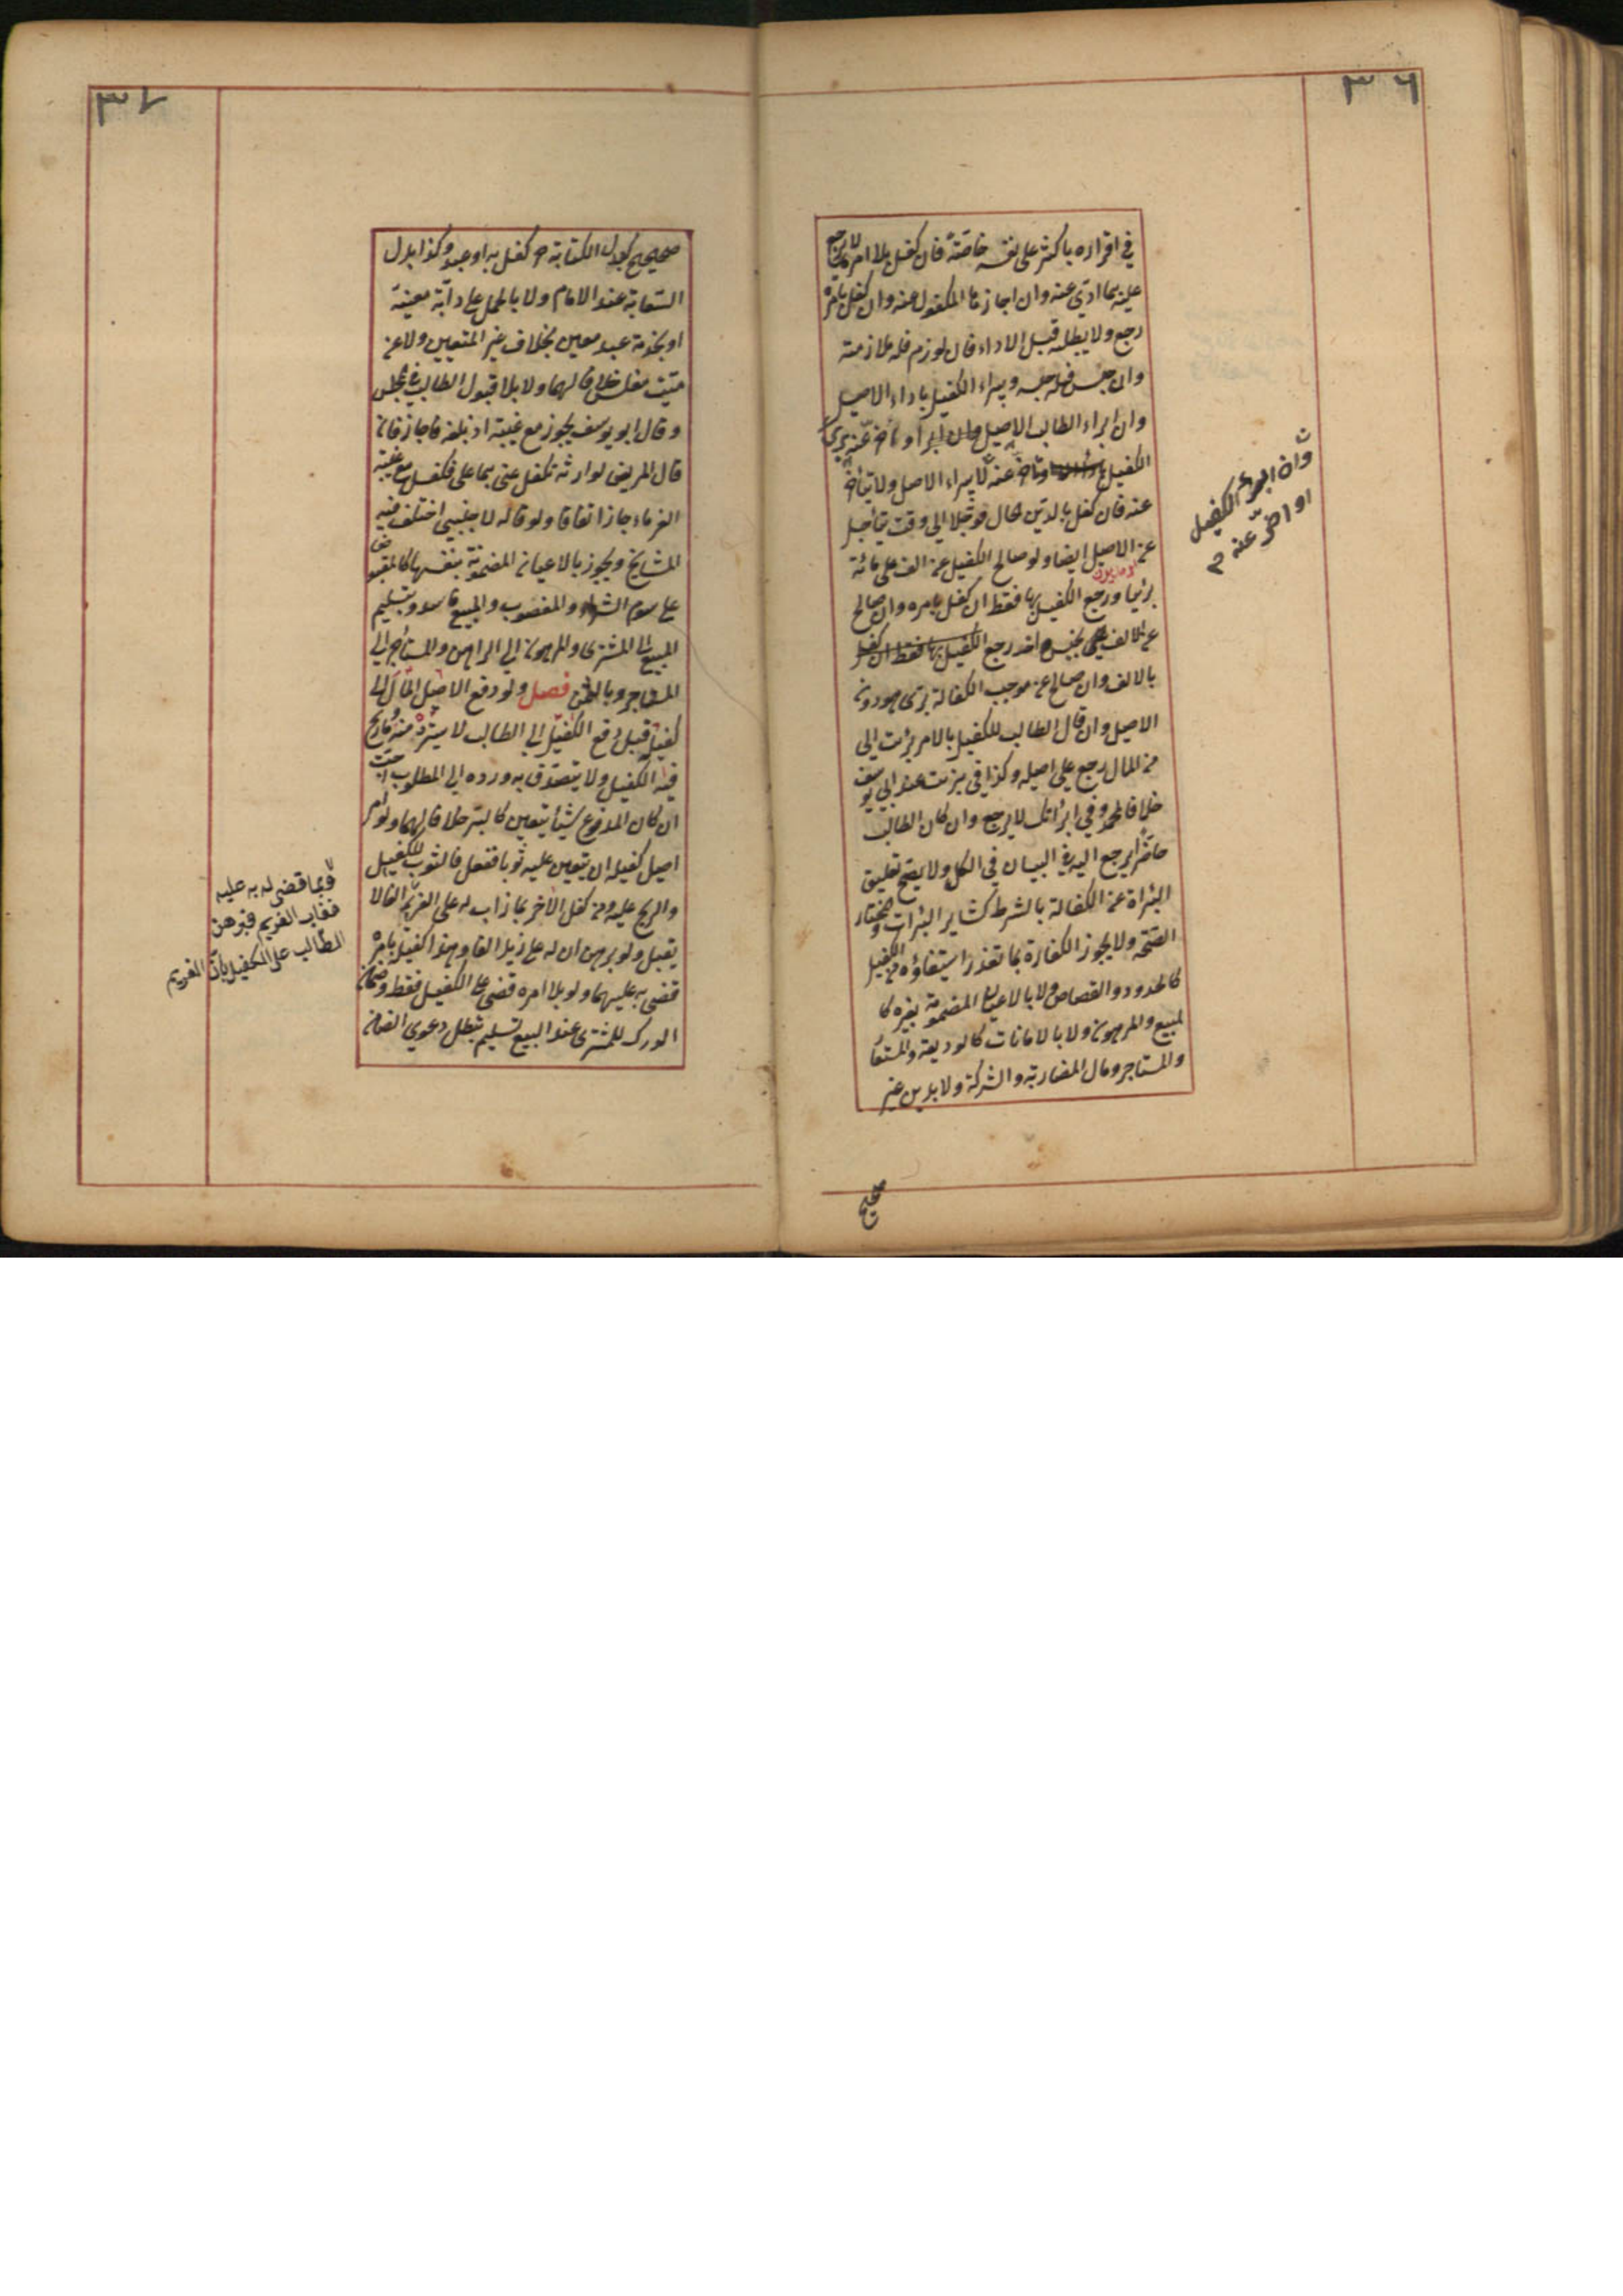 ٣٦
في اقراره باكثر على نفسه خاصة فان كفل بلا امره لا يرجع
عليه بما ادى عنه وان اجازها المكفول عنه وان كفل بامره
رجع ولا يطلبه قبل الاداء فان لوزم فله ملازمته
وان حبس فله حبسه ويبراء الكفيل باداء الاصيل
وان ابراء الطالب الاصيل او اخر عنه برئ
الكفيل وتأخر عنه لا يبراء الاصل ولا يتأخر
عنه فان كفل بالدين الحال مؤجلا الى وقت يتأجل
عن الاصيل ايضا ولو صالح الكفيل عن الف على مائة
برئيا ورجع الكفيل بها فقط ان كفل بامره وان صالح
عن الالف بجنس اخر رجع الكفيل بها فقط ان كفل
بالالف وان صالح عن موجب الكفالة برئ هو دون
الاصيل وان قال الطالب للكفيل بالامر برئت الى
من المال رجع على اصيله وكذا في برئت عند ابي يوسف
خلافا لمحمد وفي ابرأتك لا يرجع وان كان الطالب
حاضرا يرجع اليه في البيان في الكل ولا يصح تعليق
البراة عن الكفالة بالشرط كسائر البرات والمختار
الصحة ولا يجوز الكفارة بما تعذر استيفاؤه من الكفيل
كالحدود والقصاص ولا بالاعيان المضمونة بغيره كا
لمبيع والمرهون ولا بالامانات كالوديعة والمستعار
والمستاجر ومال المضاربة والشركة ولا بدين غير
وان ابرء الكفيل
او اخر عنه
صحيح
٣٧
صحيح كبدل الكتابة حر كفل به او عبد وكذا بدل
السعاية عند الامام ولا بالحمل على دابة معينة
او بخدمة عبد معين بخلاف غير المتعين ولا عن
ميت مفلس خلافا لهما ولا بلا قبول الطالب في المجلس
وقال ابو يوسف يجوز مع غيبته اذ بلغه فاجاز فان
قال المريض لوارثه تكفل عنى بما على فكفل مع غيبة
الغرماء جاز اتفاقا ولو قاله لاجنبي اختلف فيه
المشايخ ويجوز بالاعيان المضمونة بنفسها كالمقبوض
على سوم الشراء والمغصوب والمبيع فاسدا وبتسليم
المبيع الى المشترى والمرهون الى الراهن والمستأجر الى
المستاجر وبالثمن فصل ولو دفع الاصيل المال الى
كفيله قبل دفع الكفيل الى الطالب لا يسترد منه وما ربح
فيه الكفيل ولا يتصدق به ورده الى المطلوب احب
ان كان المدفوع شيئا يتعين كالبر خلافا لهما ولو امر
اصيل كفيله ان يتعين عليه ثوبا ففعل فالثوب للكفيل
والربح عليه ومن كفل الاخر بما ذاب له على الغريم الفا لا
يقبل ولو برهن ان له على زيد الفا وهذا كفيل بامره
قضى به عليهما ولو بلا امره قضى على الكفيل فقط وضمان
الدرك للمشترى عند البيع تسليم يبطل دعوى الضمان
وبما قضى له به عليه
فغاب الغريم فبرهن
الطالب على الكفيل بان الغريم